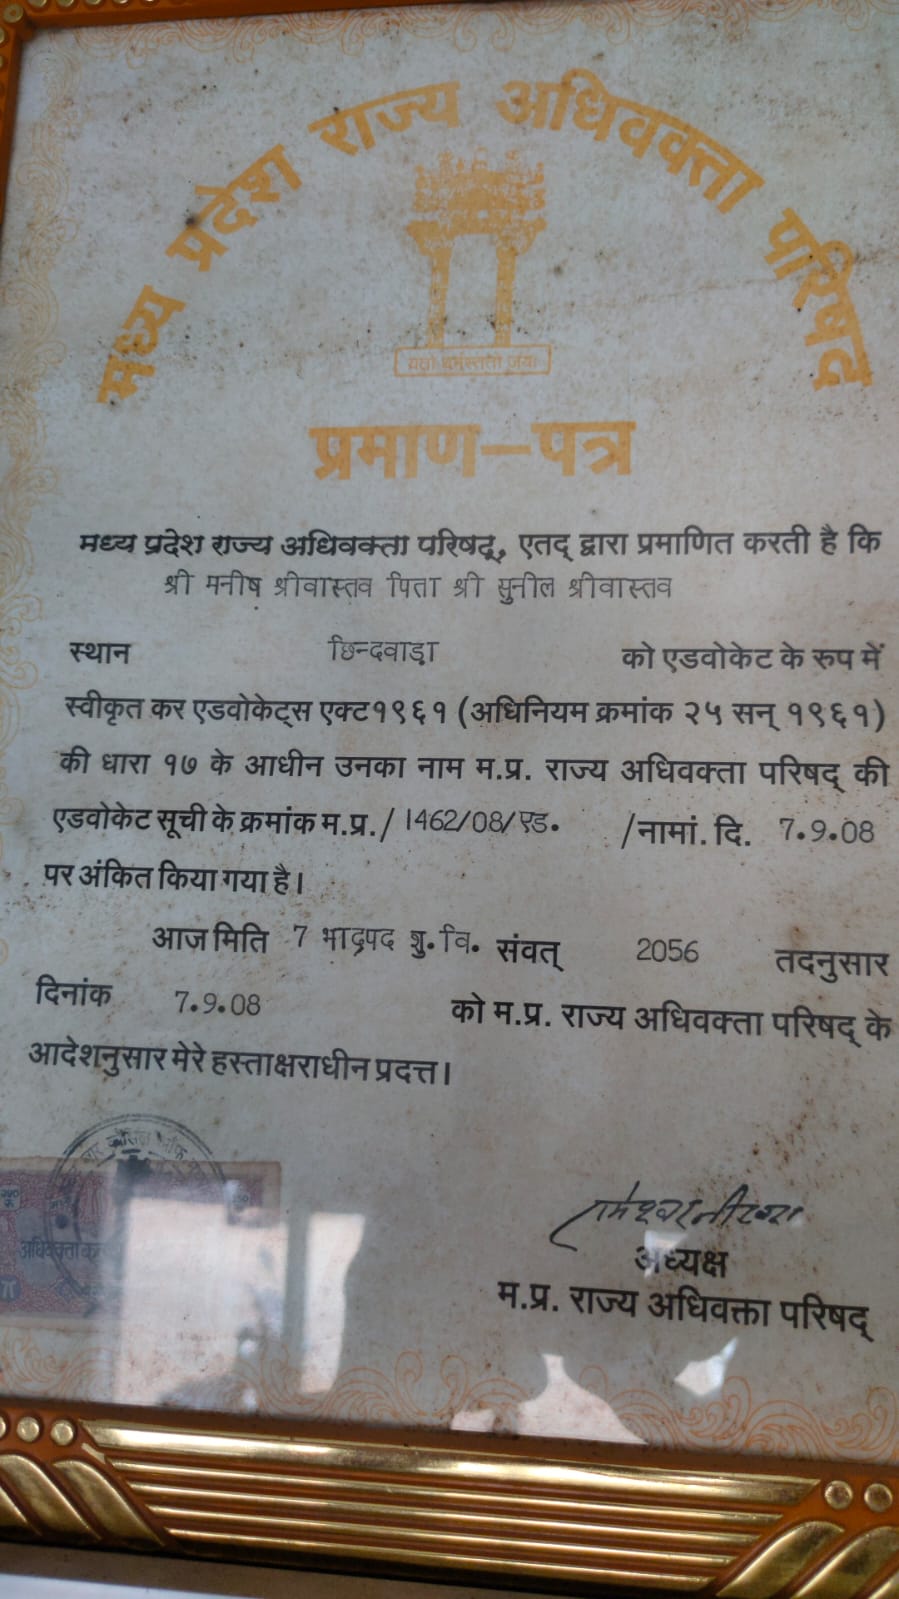 मध्य प्रदेश राज्य अधिवक्ता परिषद्
यतो धर्मस्ततो जयः
प्रमाण-पत्र
मध्य प्रदेश राज्य अधिवक्ता परिषद्, एतद् द्वारा प्रमाणित करती है कि
श्री मनीष श्रीवास्तव पिता श्री सुनील श्रीवास्तव
स्थान छिन्दवाड़ा को एडवोकेट के रूप में
स्वीकृत कर एडवोकेट्स एक्ट१९६१ (अधिनियम क्रमांक २५ सन् १९६१)
की धारा १७ के आधीन उनका नाम म.प्र. राज्य अधिवक्ता परिषद् की
एडवोकेट सूची के क्रमांक म.प्र./ 1462/08/एड. /नामां. दि. 7.9.08
पर अंकित किया गया है।
आज मिति 7 भाद्रपद शु.वि. संवत् 2056 तदनुसार
दिनांक 7.9.08 को म.प्र. राज्य अधिवक्ता परिषद् के
आदेशनुसार मेरे हस्ताक्षराधीन प्रदत्त।
अधिवक्ता
अध्यक्ष
म.प्र. राज्य अधिवक्ता परिषद्